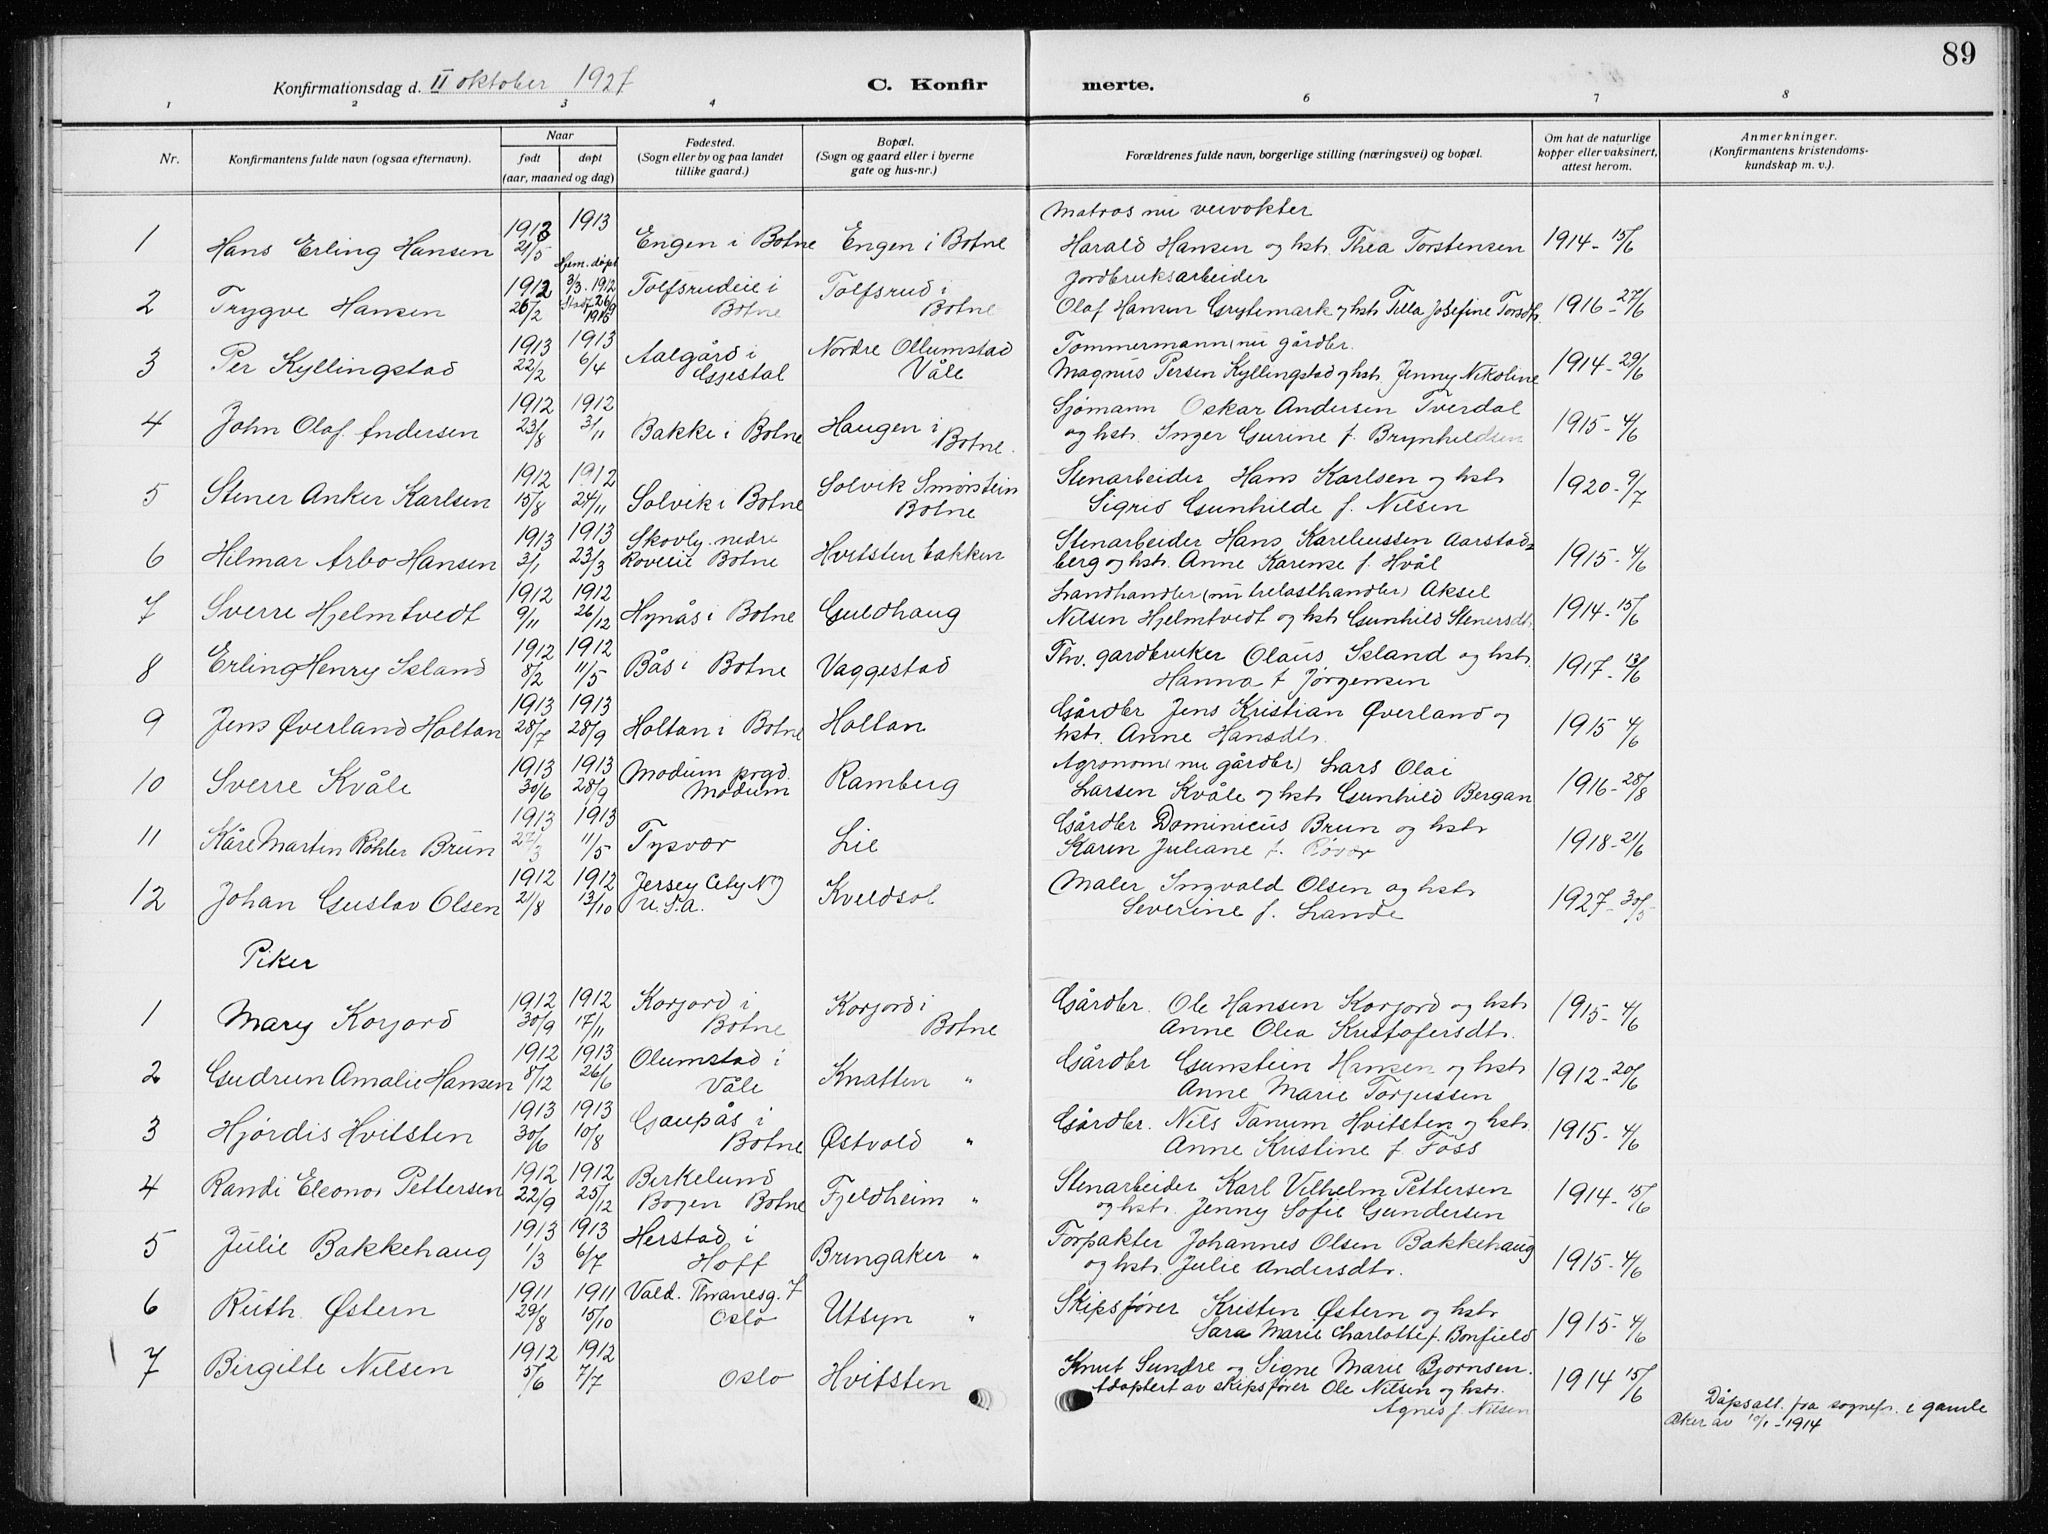 89
Konfirmationsdag d. II oktober 1927
C. Konfirmerte.
1 2 3 4 5 6 7 8
Nr.
Konfirmantens fulde navn (ogsaa efternavn).
Naar
født
døpt
(aar, maaned og dag)
Fødested.
(Sogn eller by og paa landet
tillike gaard.)
Bopæl.
(Sogn og gaard eller i byerne
gate og hus-nr.)
Forældrenes fulde navn, borgerlige stilling (næringsvei) og bopæl.
Om hat de naturlige
kopper eller vaksinert,
attest herom.
Anmerkninger.
(Konfirmantens kristendoms-
kundskap m. v.).
Matros nu veivokter
1 Hans Erling Hansen 1913 21/5 1913 Engen i Botne Engen i Botne Harald Hansen og hstr. Thea Torstensen 1914 - 15/6
Jordbruksarbeider
2 Trygve Hansen 1912 26/2 Hjem. døpt 3/3 - 1912 Stadf. 26/9 1913 Tolfsrudeie i Botne Tolfsrud i Botne Olaf Hansen Grytemark og hstr. Tilla Josefine Torsdtr. 1916 - 27/6
Tømmermann (nu gårdbr.
3 Per Kyllingstad 1913 22/2 1913 6/4 Aalgård i Gjestal Nordre Ollumstad Våle Magnus Persen Kyllingstad og hstr. Jenny Nikoline 1914 - 29/6
4 John Olaf Andersen 1912 23/8 1912 3/11 Bakke i Botne Haugen i Botne. Sjømann Oskar Andersen Tverdal
og hstr. Inger Gurine f. Brynhildsen 1915 - 4/6
5 Stener Anker Karlsen 1912 15/8 1912 24/11 Solvik i Botne Solvik Smørstein Botne Stenarbeider Hans Karlsen og hstr.
Sigrid Gunhilde f. Nilsen 1920 - 9/7
6 Hilmar Arbo Hansen 1913 3/1 1913 23/3 Skovly. nedre Roveie Botne Hvitstenbakken Stenarbeider Hans Kareliussen Aarstad-
berg og hstr. Anne Karense f. Hvål 1915 - 4/6
7 Sverre Hjelmtvedt 1912 9/11 1912 26/12 Hynås i Botne Guldhaug Landhandler (nu trelasthandler) Aksel
Nilsen Hjelmtvedt og hstr. Gunhild Stenersdtr. 1914 - 15/6
8 Erling Henry Island 1912 8/2 1912 11/5 Bås i Botne Vaggestad Thv. gardbruker Olaus Island og hstr.
Hanna f. Jørgensen 1917 - 13/6
9 Jens Øverland Holtan 1913 28/7 1913 28/9 Holtan i Botne Holtan Gårdbr. Jens Kristian Øverland og
hstr. Anne Hansdtr. 1915 4/6
10 Sverre Kvåle 1913 30/6 1913 28/9 Modum prgd. Modum Ramberg Agronom (nu gårdbr) Lars Olai
Larsen Kvåle og hstr. Gunhild Bergan 1916 - 28/8
11 Kåre Marten Køhler Brun 1913 1913 11/5 Tysvær Lie Gårdbr Dominicus Brun og hstr.
Karen Juliane f. 1918 - 21/6
12 Johan Gustav Olsen 1912 21/8 1912 13/10 Jersey City N J U.S.A. Kveldsol Maler Ingvald Olsen og hstr.
Severine f. Lande 1927 - 30/5
Piker
1 Mary Korjord 1912 30/9 1912 17/11 Korjord i Botne Korjord i Botne Gårdbr. Ole Hansen Korjord og hstr.
Anne Olea Kristofersdtr. 1915 - 4/6
2 Gudrun Amalie Hansen 1912 8/12 1913 26/6 Olumstad i Våle Knatten " Gårdbr Gunstein Hansen og hstr.
Anne Marie Torjussen 1912 - 20/6
3 Hjørdis Hvitsten 1913 30/6 1913 10/8 Gaupås i Botne Østvold " Gårdbr. Nils Tanum Hvitsten og hstr.
Anne Kristine f. Foss 1915 - 4/6
4 Randi Eleonor Pettersen 1912 22/9 1912 25/12 Birkelund Bogen Botne Fjeldheim " Stenarbeider Karl Vilhelm Pettersen
og hstr. Jenny Sofie Gundersen 1914 - 15/6
5 Julie Bakkehaug 1913 1/3 1913 6/7 Herstad i Hoff Bringaker " Forpakter Johannes Olsen Bakkehaug
og hstr. Julie Andersdtr. 1915 - 4/6
6 Ruth Østern 1911 29/8 1911 15/10 Vald. Thranesg. 7 Oslo Utsyn " Skipsfører Kristen Østern og hstr
Sara Marie Charlotte f. Bonfield 1915 - 4/6
7 Birgitte Nilsen 1912 5/6 1912 7/7 Oslo Hvitsten Knut Sundre og Signe Marie Bjørnsen.
Adoptert av skipsfører Ole Nilsen og hstr.
Agnes f. Nilsen 1914 15/6
Dåpsatt. fra sognepr. i gamle
Aker av 10/1 - 1914